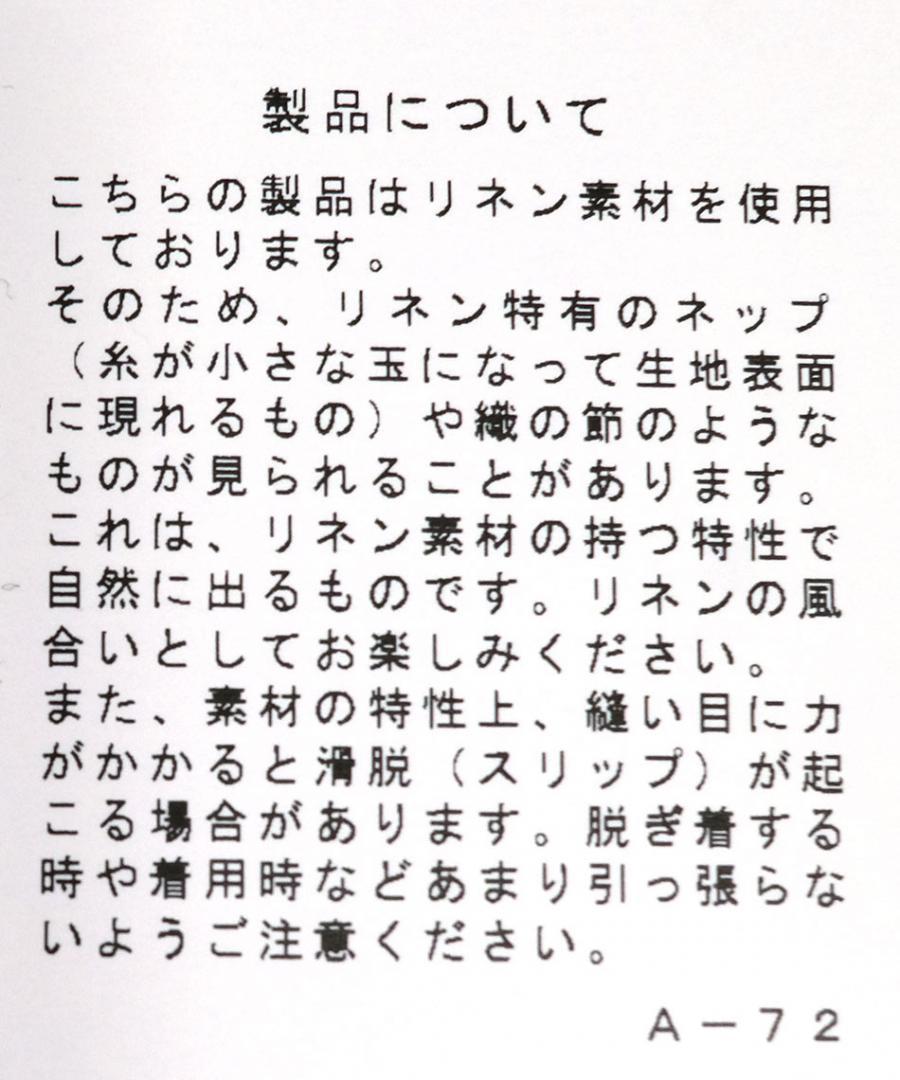 製品について
こちらの製品はリネン素材を使用
しております。
そのため、リネン特有のネップ
（糸が小さな玉になって生地表面
に現れるもの）や織の節のような
ものが見られることがあります。
これは、リネン素材の持つ特性で
自然に出るものです。リネンの風
合いとしてお楽しみください。
また、素材の特性上、縫い目に力
がかかると滑脱（スリップ）が起
こる場合があります。脱ぎ着する
時や着用時などあまり引っ張らな
いようご注意ください。
A－72